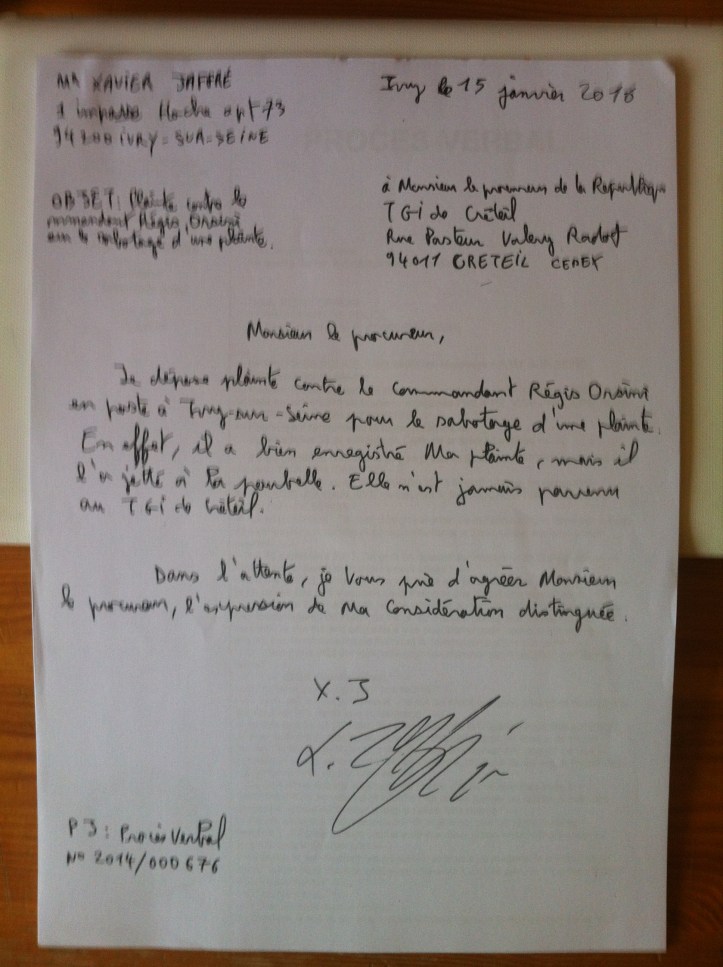 Mr XAVIER JAFFRÉ
1 impasse Hoche apt 73
94200 IVRY-SUR-SEINE
Ivry le 15 janvier 2018
OBJET: Plainte contre le
commandant Régis Orsini
sabotage d'une plainte.
à Monsieur le procureur de la République
TGi de Créteil
Rue Pasteur Valery Radot
94011 CRETEIL CEDEX
Monsieur le procureur,
Je dépose plainte contre le commandant Régis Orsini
en poste à Ivry-sur-Seine pour le sabotage d'une plainte.
En effet, il a bien enregistré Ma plainte, mais il
l'a jetté à la poubelle. Elle n'est jamais parvenu
au TGi de Créteil.
Dans l'attente, je Vous prie d'agréer Monsieur
le procureur, l'expression de Ma considération distinguée.
X.J
PJ: Procès Verbal
N° 2014/000676
PROCES VERBAL